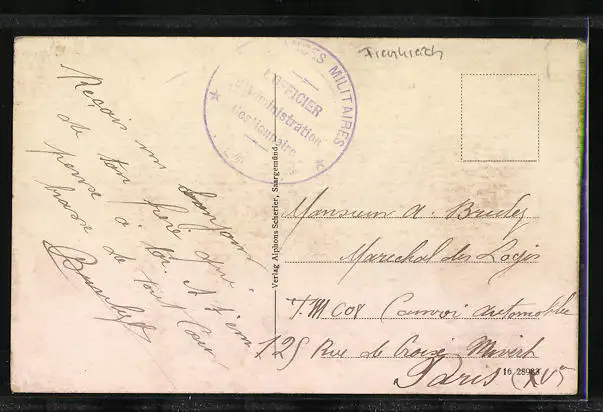 Frankreich
SUBSISTANCES MILITAIRES
L'OFFICIER
d'Administration
Gestionnaire
Reçois un bonjour
de ton frère qui
pense à toi. et t'em
brasse de tout Cœur
Verlag Alphons Scherier, Saargemünd.
Monsieur A.
Marechal des Logis
T. M Convoi Automobile
125 Rue de Croix Nivert
Paris (XVe
16 28983